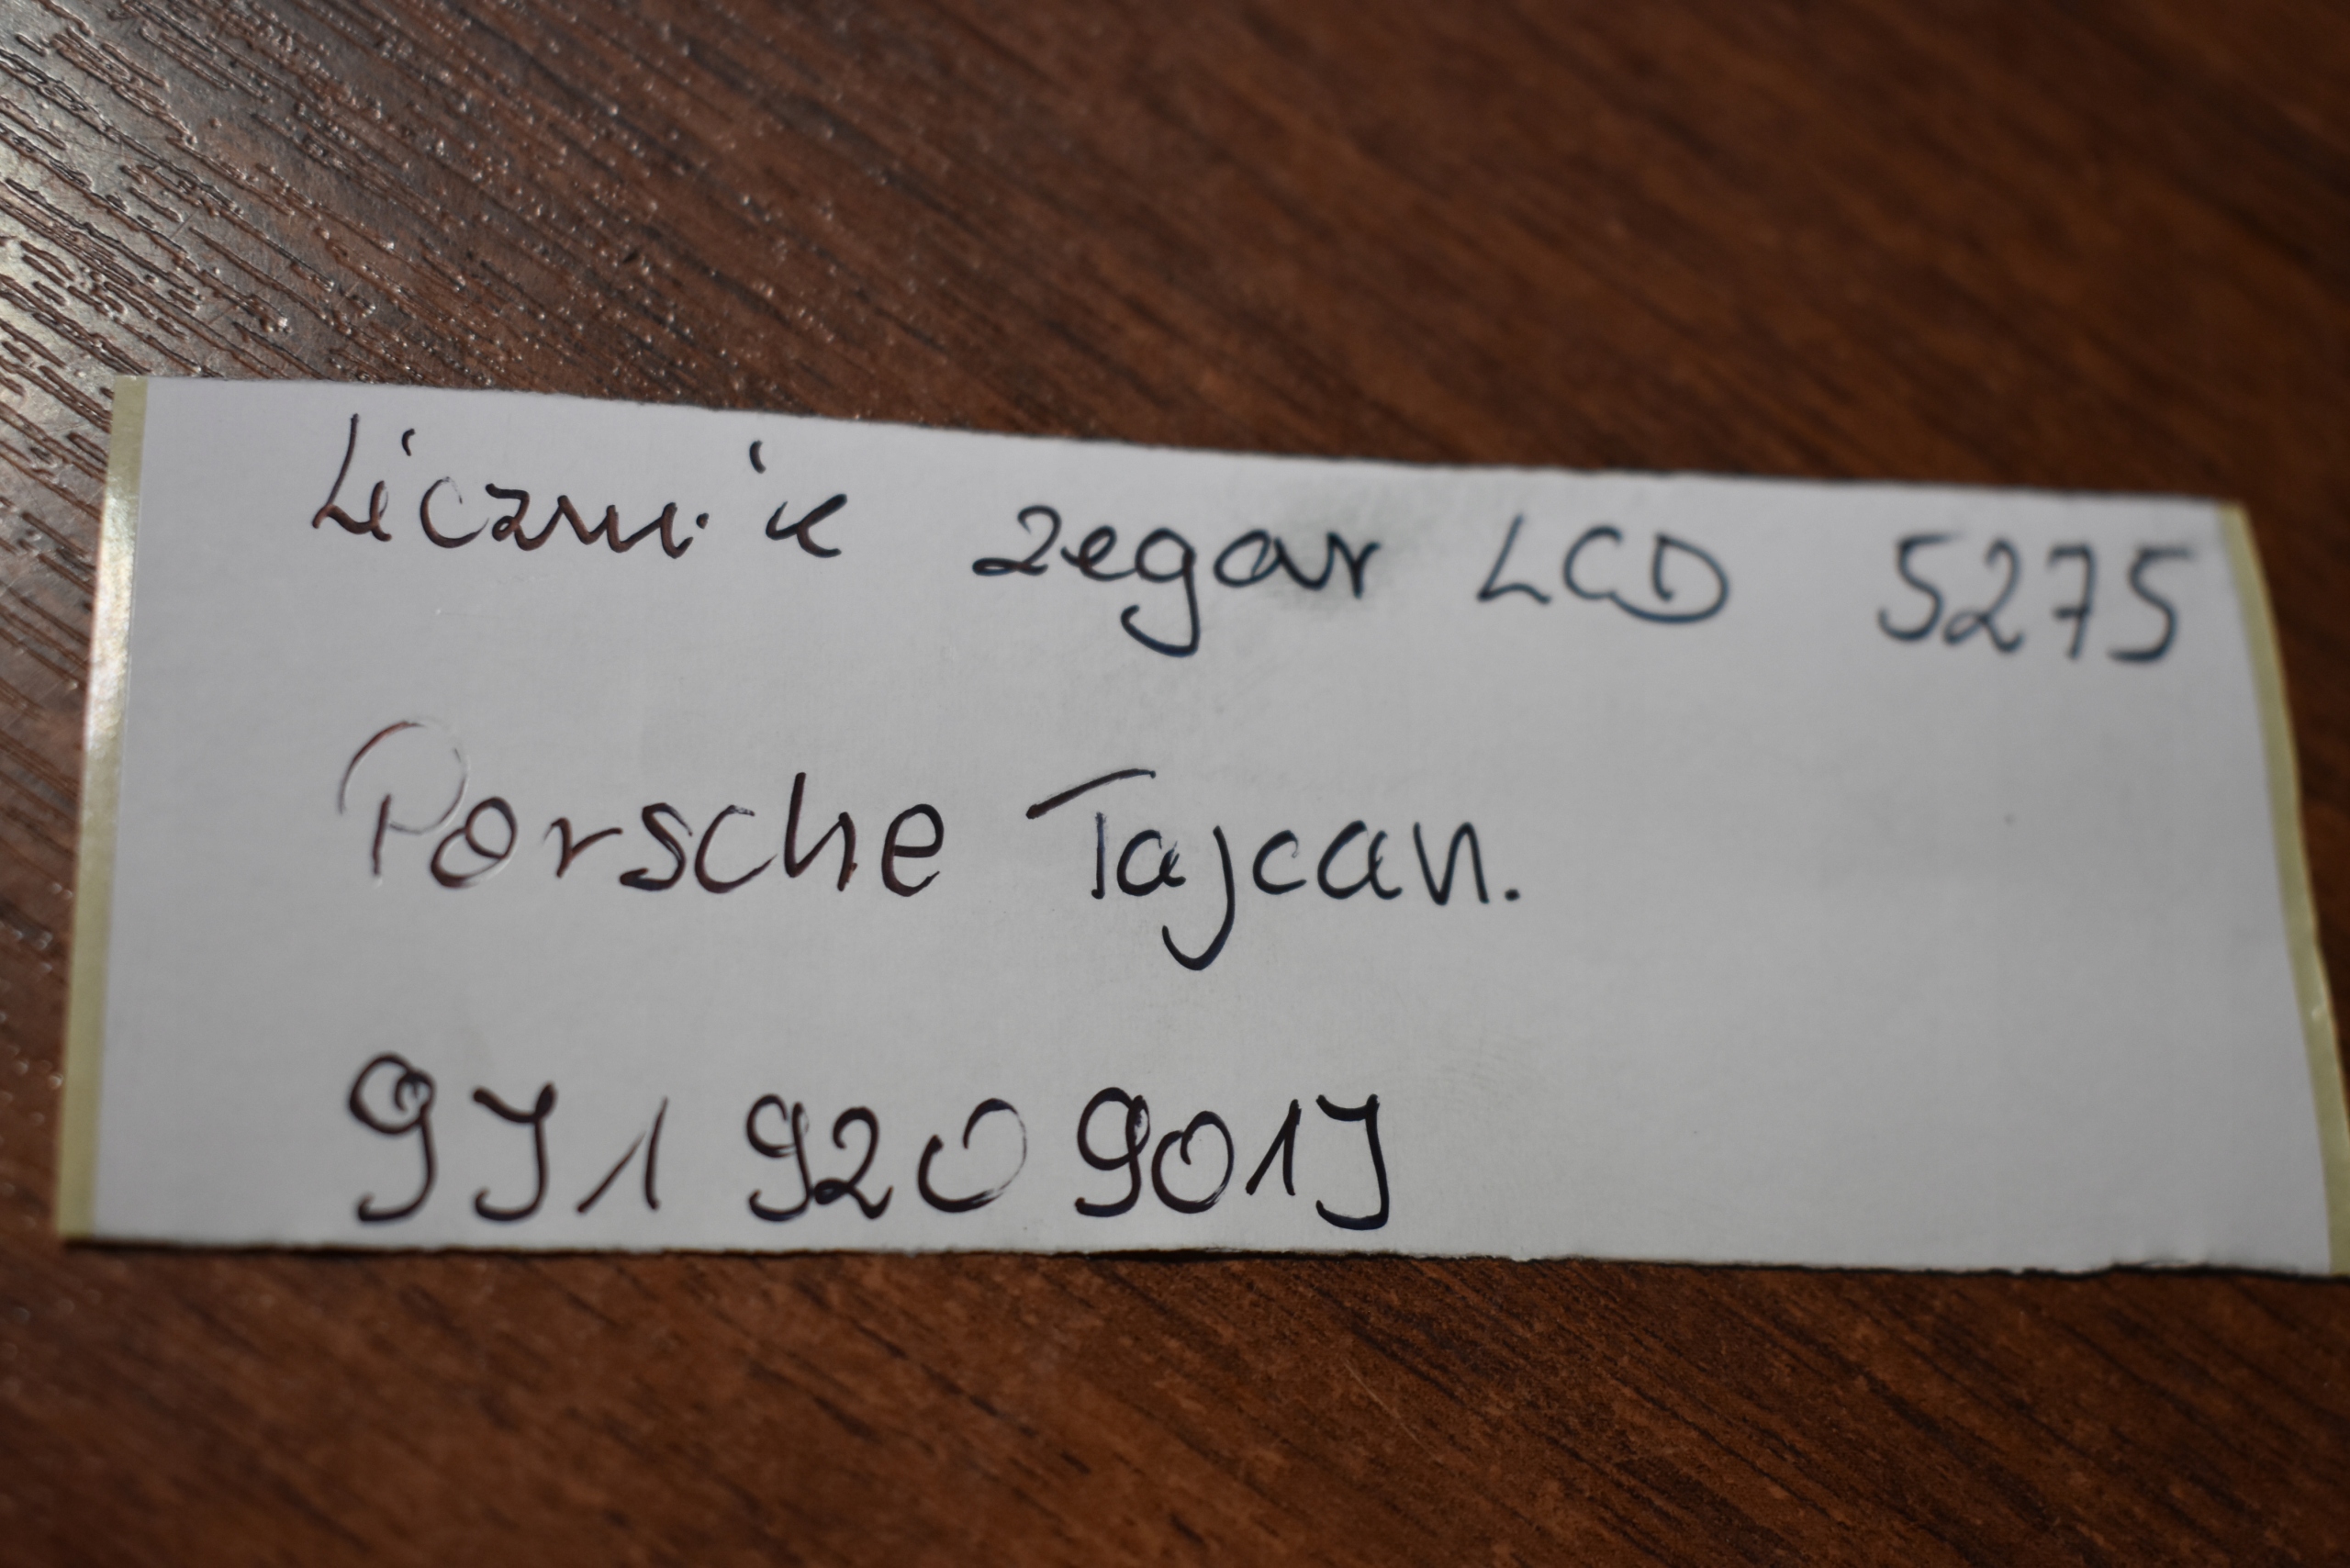 Licznik zegar LCD 5275
Porsche Tajcan.
9J1 920 901J